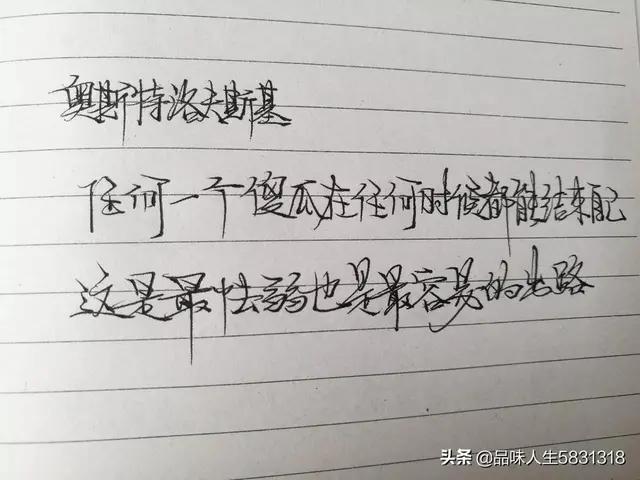 奥斯特洛夫斯基
任何一个傻瓜在任何时候都能结束自己
这是最怯弱也是最容易的出路
头条 @品味人生5831318